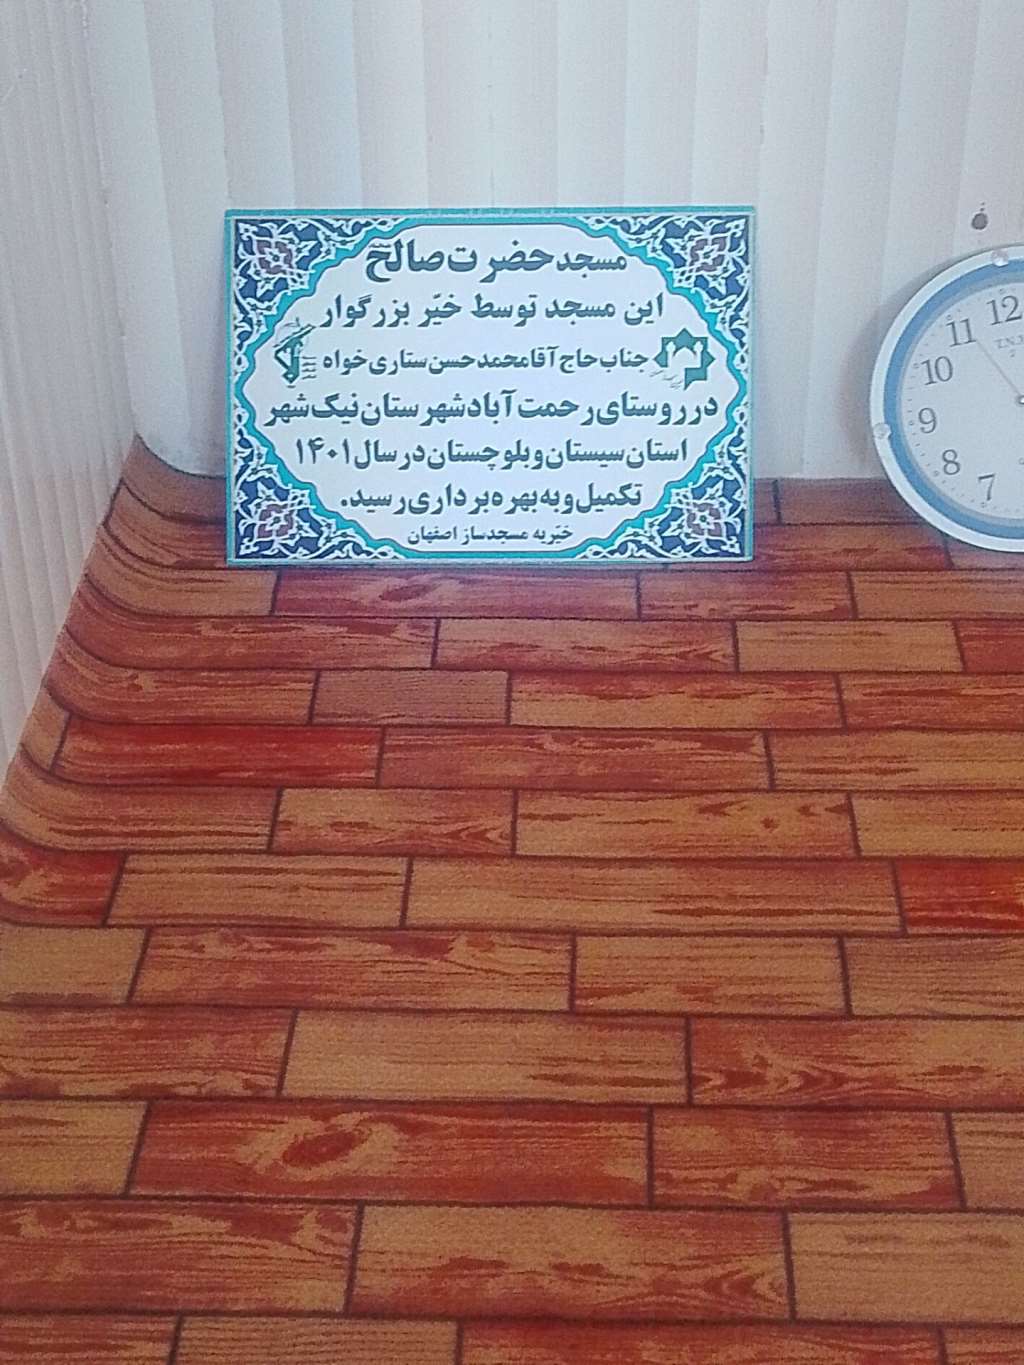 مسجد حضرت صالح
این مسجد توسط خیّر بزرگوار
جناب حاج آقا محمد حسن ستاری خواه
در روستای رحمت آباد شهرستان نیک شهر
استان سیستان و بلوچستان در سال ۱۴۰۱
تکمیل و به بهره برداری رسید.
خیّریه مسجدساز اصفهان
12
11
10
9
8
7